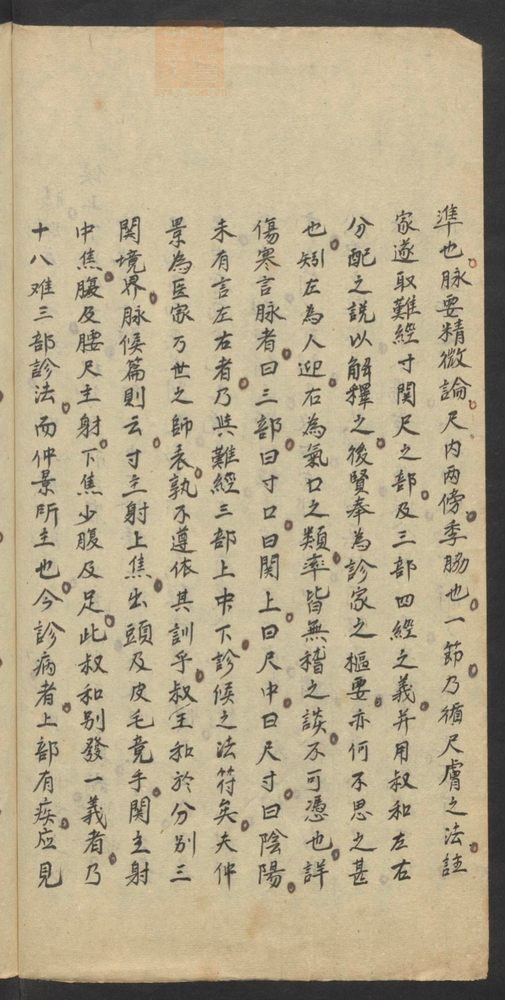 準也脉要精微論尺内两傍季胁也一節乃循尺膚之法註
家遂取難經寸関尺之部及三部四經之義并用叔和左右
分配之説以解釋之後賢奉為診家之樞要亦何不思之甚
也矧左為人迎右為氣口之類率皆無稽之談不可憑也詳
傷寒言脉者曰三部曰寸口曰関上曰尺中曰尺寸曰陰陽
未有言左右者乃與難經三部上中下診候之法符矣夫仲
景為医家万世之師表孰不遵依其訓乎叔王和於分别三
関境界脉候篇則云寸主射上焦出頭及皮毛竟手関主射
中焦腹及腰尺主射下焦少腹及足此叔和别發一義者乃
十八难三部診法而仲景所主也今診病者上部有疾应見